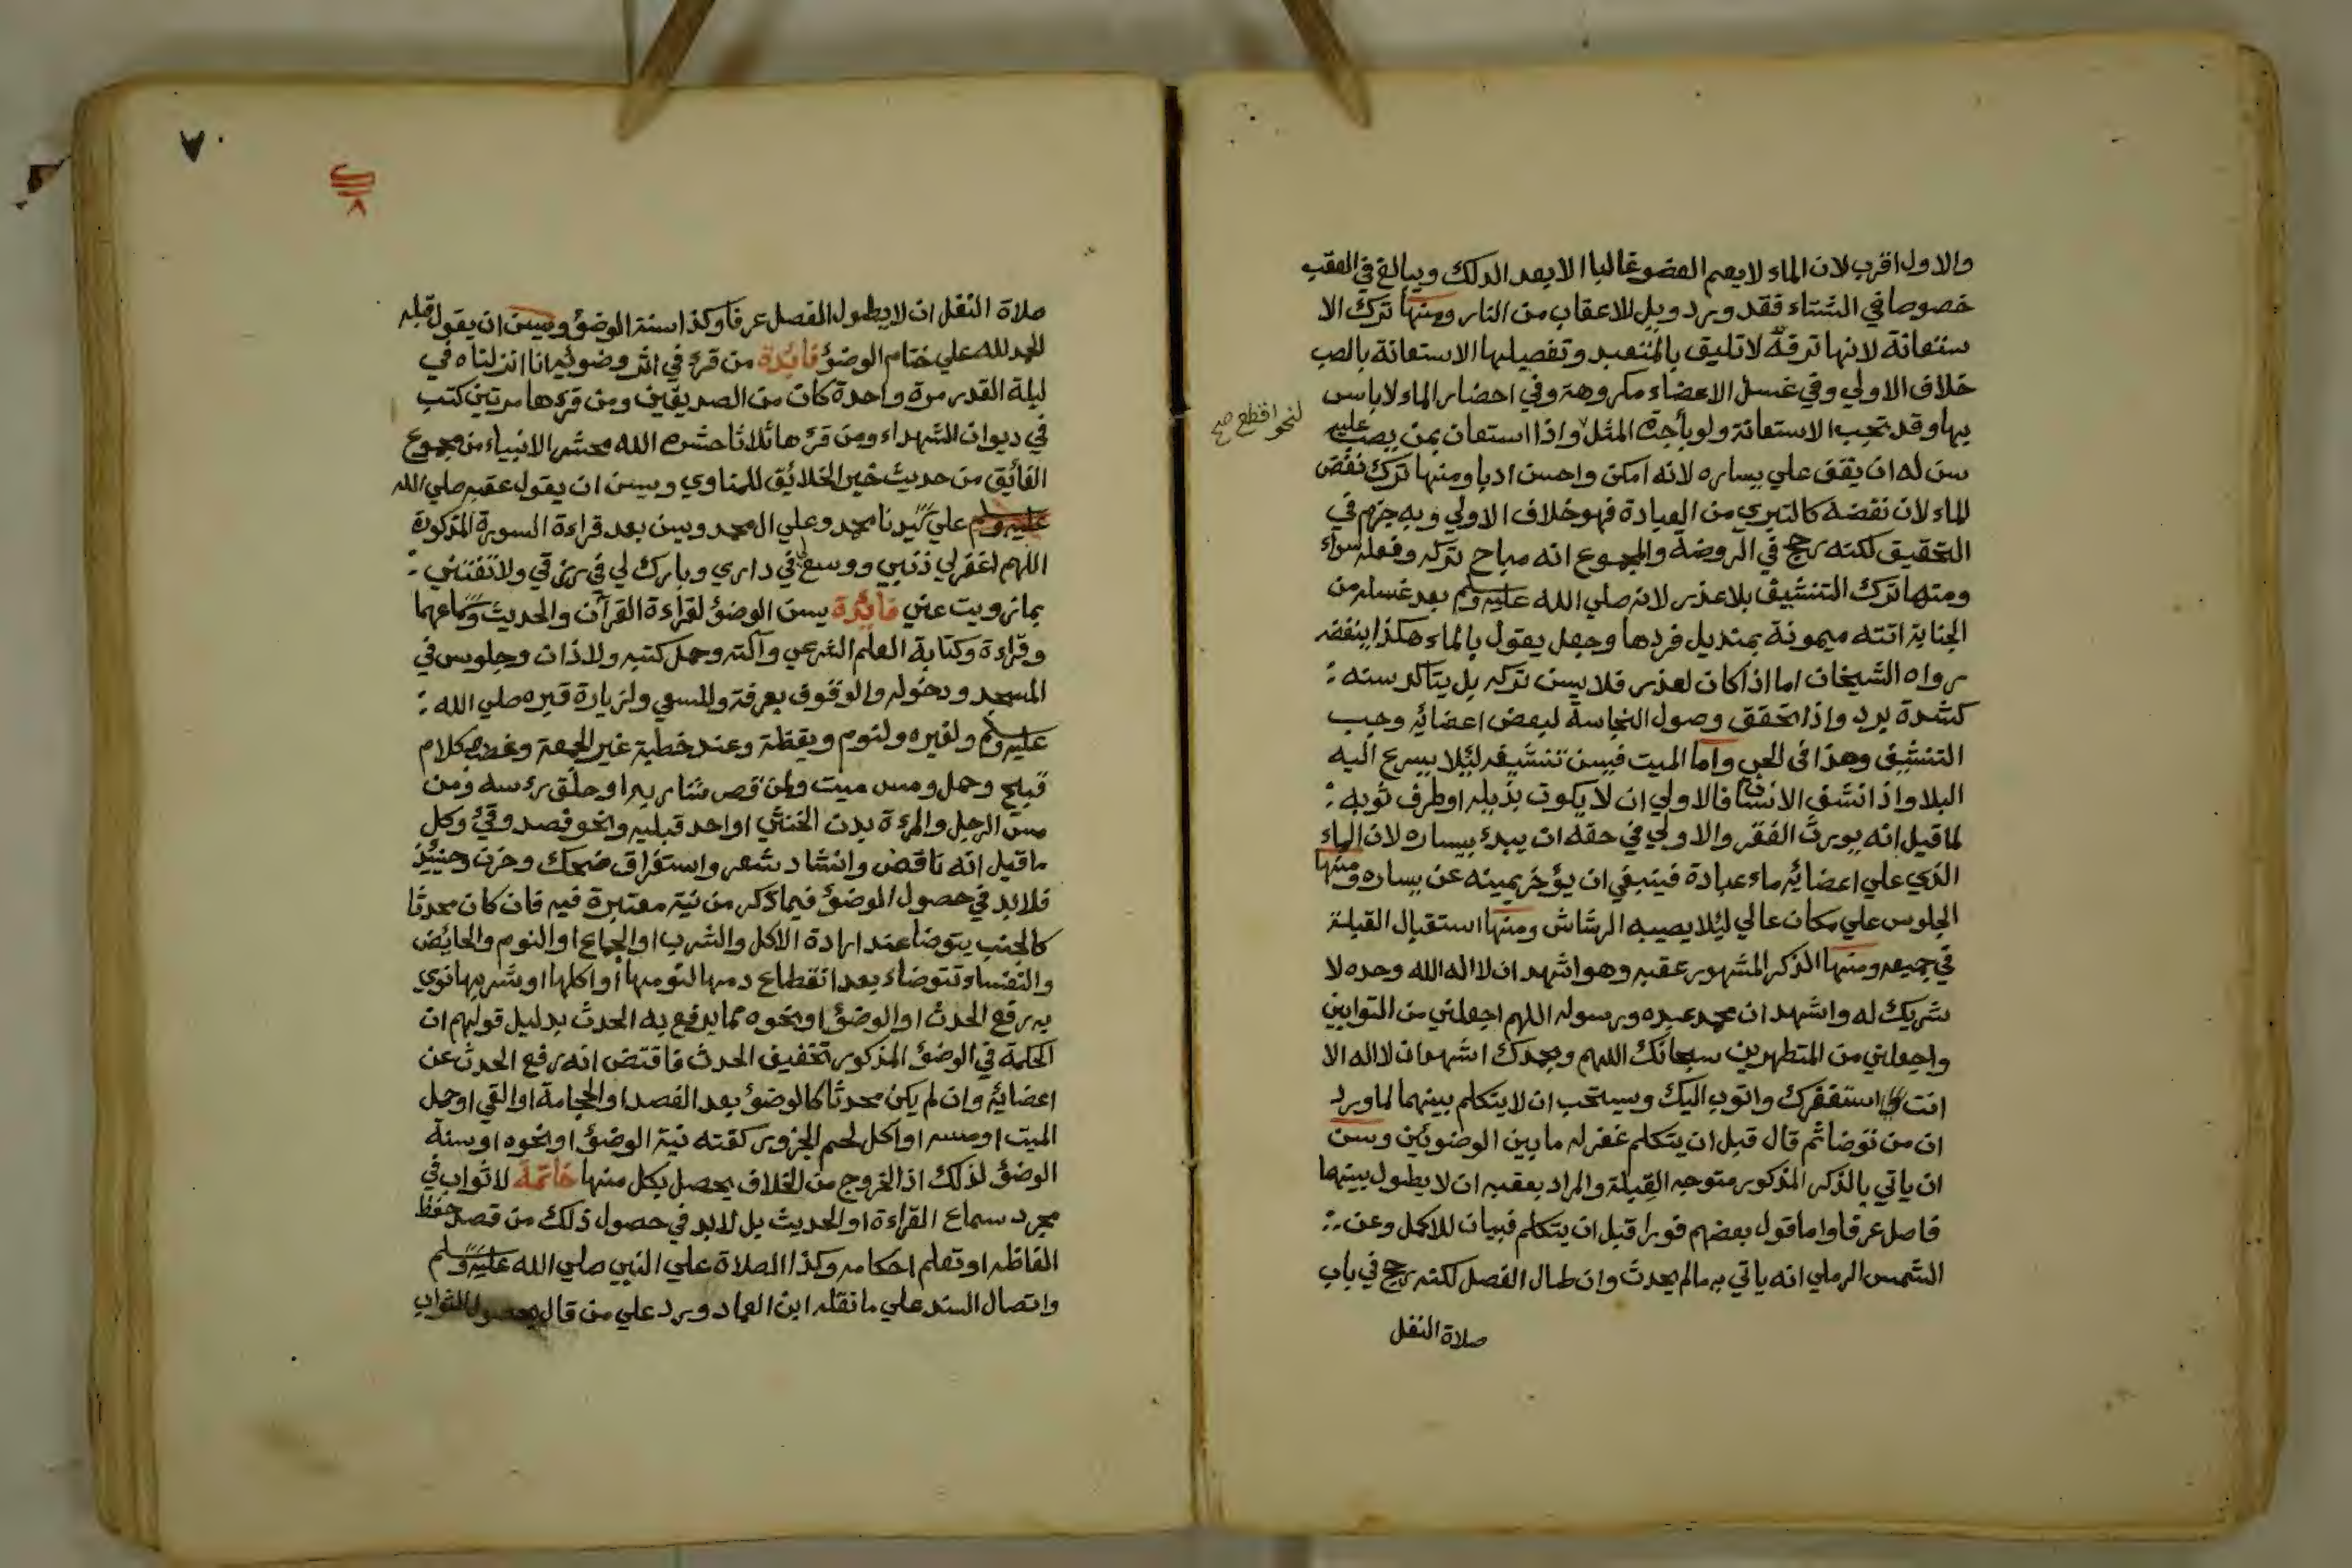 والاول اقرب لان الماء لا يعم العضو غالبا الا بعد الدلك ويبالغ في العقب
خصوصا في الشتاء فقد ورد ويل للاعقاب من النار ومنها ترك الا
ستعانة لانها ترفة لا تليق بالمتعبد وتفصيلها الاستعانة بالصب
خلاف الاولي وفي غسل الاعضاء مكروهة وفي احضار الماء لا باس
بها وقد تجب الاستعانة ولو بأجرة المثل واذا استعان بمن يصب عليه
لنحو اقطع صح
سن له ان يقف علي يساره لانه امكن واحسن ادبا ومنها ترك نفض
الماء لان نفضه كالتبري من العبادة فهو خلاف الاولي وبه جزم في
التحقيق لكنه رجح في الروضة والمجموع انه مباح تركه وفعله سواء
ومنها ترك التنشيف بلا عذر لانه صلي الله عليه وسلم بعد غسله من
الجنابة اتته ميمونة بمنديل فردها وجعل يقول بالماء هكذا ينفضه
رواه الشيخان اما اذا كان لعذر فلا يسن تركه بل يتاكد سنه :
كشدة برد واذا تحقق وصول النجاسة لبعض اعضائه وجب
التنشيف وهذا في الحي واما الميت فيسن تنشيفه ليلا يسرع اليه
البلا واذا نشف الانسان فالاولي ان لا يكون بذيله او طرف ثوبه :
لما قيل انه يورث الفقر والاولي في حقه ان يبدئ بيساره لان الماء
الذي علي اعضائه ماء عبادة فينبغي ان يؤخر يمينه عن يساره ومنها
الجلوس علي مكان عالي ليلا يصيبه الرشاش ومنها استقبال القبلة
في جميعه ومنها الذكر المشهور عقبه وهو اشهد ان لا اله الله وحده لا
شريك له واشهد ان محمد عبده ورسوله اللهم اجعلني من التوابين
واجعلني من المتطهرين سبحانك اللهم وبحمدك اشهد ان لا اله الا
انت استغفرك واتوب اليك ويستحب ان لا يتكلم بينهما لما ورد
ان من توضا ثم قال قبل ان يتكلم غفر له ما بين الوضوئين وسن
ان ياتي بالذكر المذكور متوجه القبلة والمراد بعقبه ان لا يطول بينهما
فاصل عرفا واما قول بعضهم فورا قبل ان يتكلم فبيان للاكمل وعن :
الشمس الرملي انه ياتي به مالم يحدث وان طال الفصل لكنه رجح في باب
صلاة النفل
٧٠
٨
صلاة النفل ان لا يطول الفصل عرفا وكذا سنة الوضؤ ويسن ان يقول قبله
الحمد لله علي ختام الوضؤ فايدة من قرئ في اثر وضوئه انا انزلناه في
ليلة القدر مرة واحدة كان من الصديقين ومن قرءها مرتين كتب
في ديوان الشهداء ومن قرءها ثلاثا حشره الله محشر الانبياء من مجموع
الفائق من حديث خير الخلائق للمناوي ويسن ان يقول عقبه صلي الله
عليه وسلم علي سيدنا محمد وعلي ال محمد ويسن بعد قراءة السورة المذكورة
اللهم اغفر لي ذنبي ووسع لي في داري وبارك لي في رزقي ولا تفتني :
بما زويت عني فائدة يسن الوضؤ لقراءة القرآن والحديث وسماعهما
وقراءة وكتابة العلم الشرعي وآلته وحمل كتبه ولاذان وجلوس في
المسجد ودخوله والوقوف بعرفة وللسعي ولزيارة قبره صلي الله :
عليه وسلم ولغيره ولنوم ويقظة وعند خطبة غير الجمعة وغضب وكلام
قبيح وحمل ومس ميت ولمن قص شاربه او حلق رءسه ومن
مس الرجل والمرءة بدن الخنثي او احد قبليه ونحو فصد وقئ وكل
ما قيل انه ناقض وانشاد شعر واستغراق ضحك وحزن وحينئذ
فلا بد في حصول الوضؤ فيما ذكر من نية معتبرة فيه فان كان محدثا
كالجنب يتوضا عند ارادة الاكل والشرب او الجماع او النوم والحائض
والنفساء تتوضاء بعد انقطاع دمها لنومها او اكلها او شربها نوي
به رفع الحدث او الوضؤ او نحوه مما يرفع به الحدث بدليل قولهم ان
الحكمة في الوضؤ المذكور تخفيف الحدث فاقتض انه رفع الحدث عن
اعضائه وان لم يكن محدثا كالوضؤ بعد الفصد او الحجامة او القي او حمل
الميت او مسه او اكل لحم الجزور كفته نية الوضؤ او نحوه او سنة
الوضؤ لذلك اذ الخروج من الخلاف يحصل بكل منها خاتمة لا ثواب في
مجرد سماع القراءة او الحديث بل لا بد في حصول ذلك من قصد حفظ
الفاظه او تعلم احكامه وكذا الصلاة علي النبي صلي الله عليه وسلم
واتصال السند علي ما نقله ابن العماد ورد علي من قال بحصول الثواب